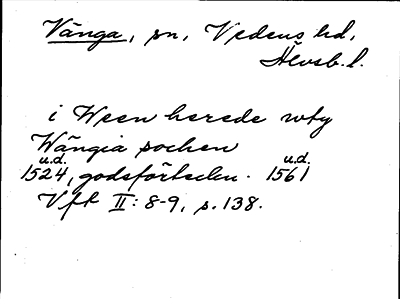 Vånga, sn, Vedens hd,
Älvsb. l.
i Ween herede wty
Wångia sochen
u.d. u.d.
1524, godsförteckn. 1561
Vft II: 8-9, s. 138.